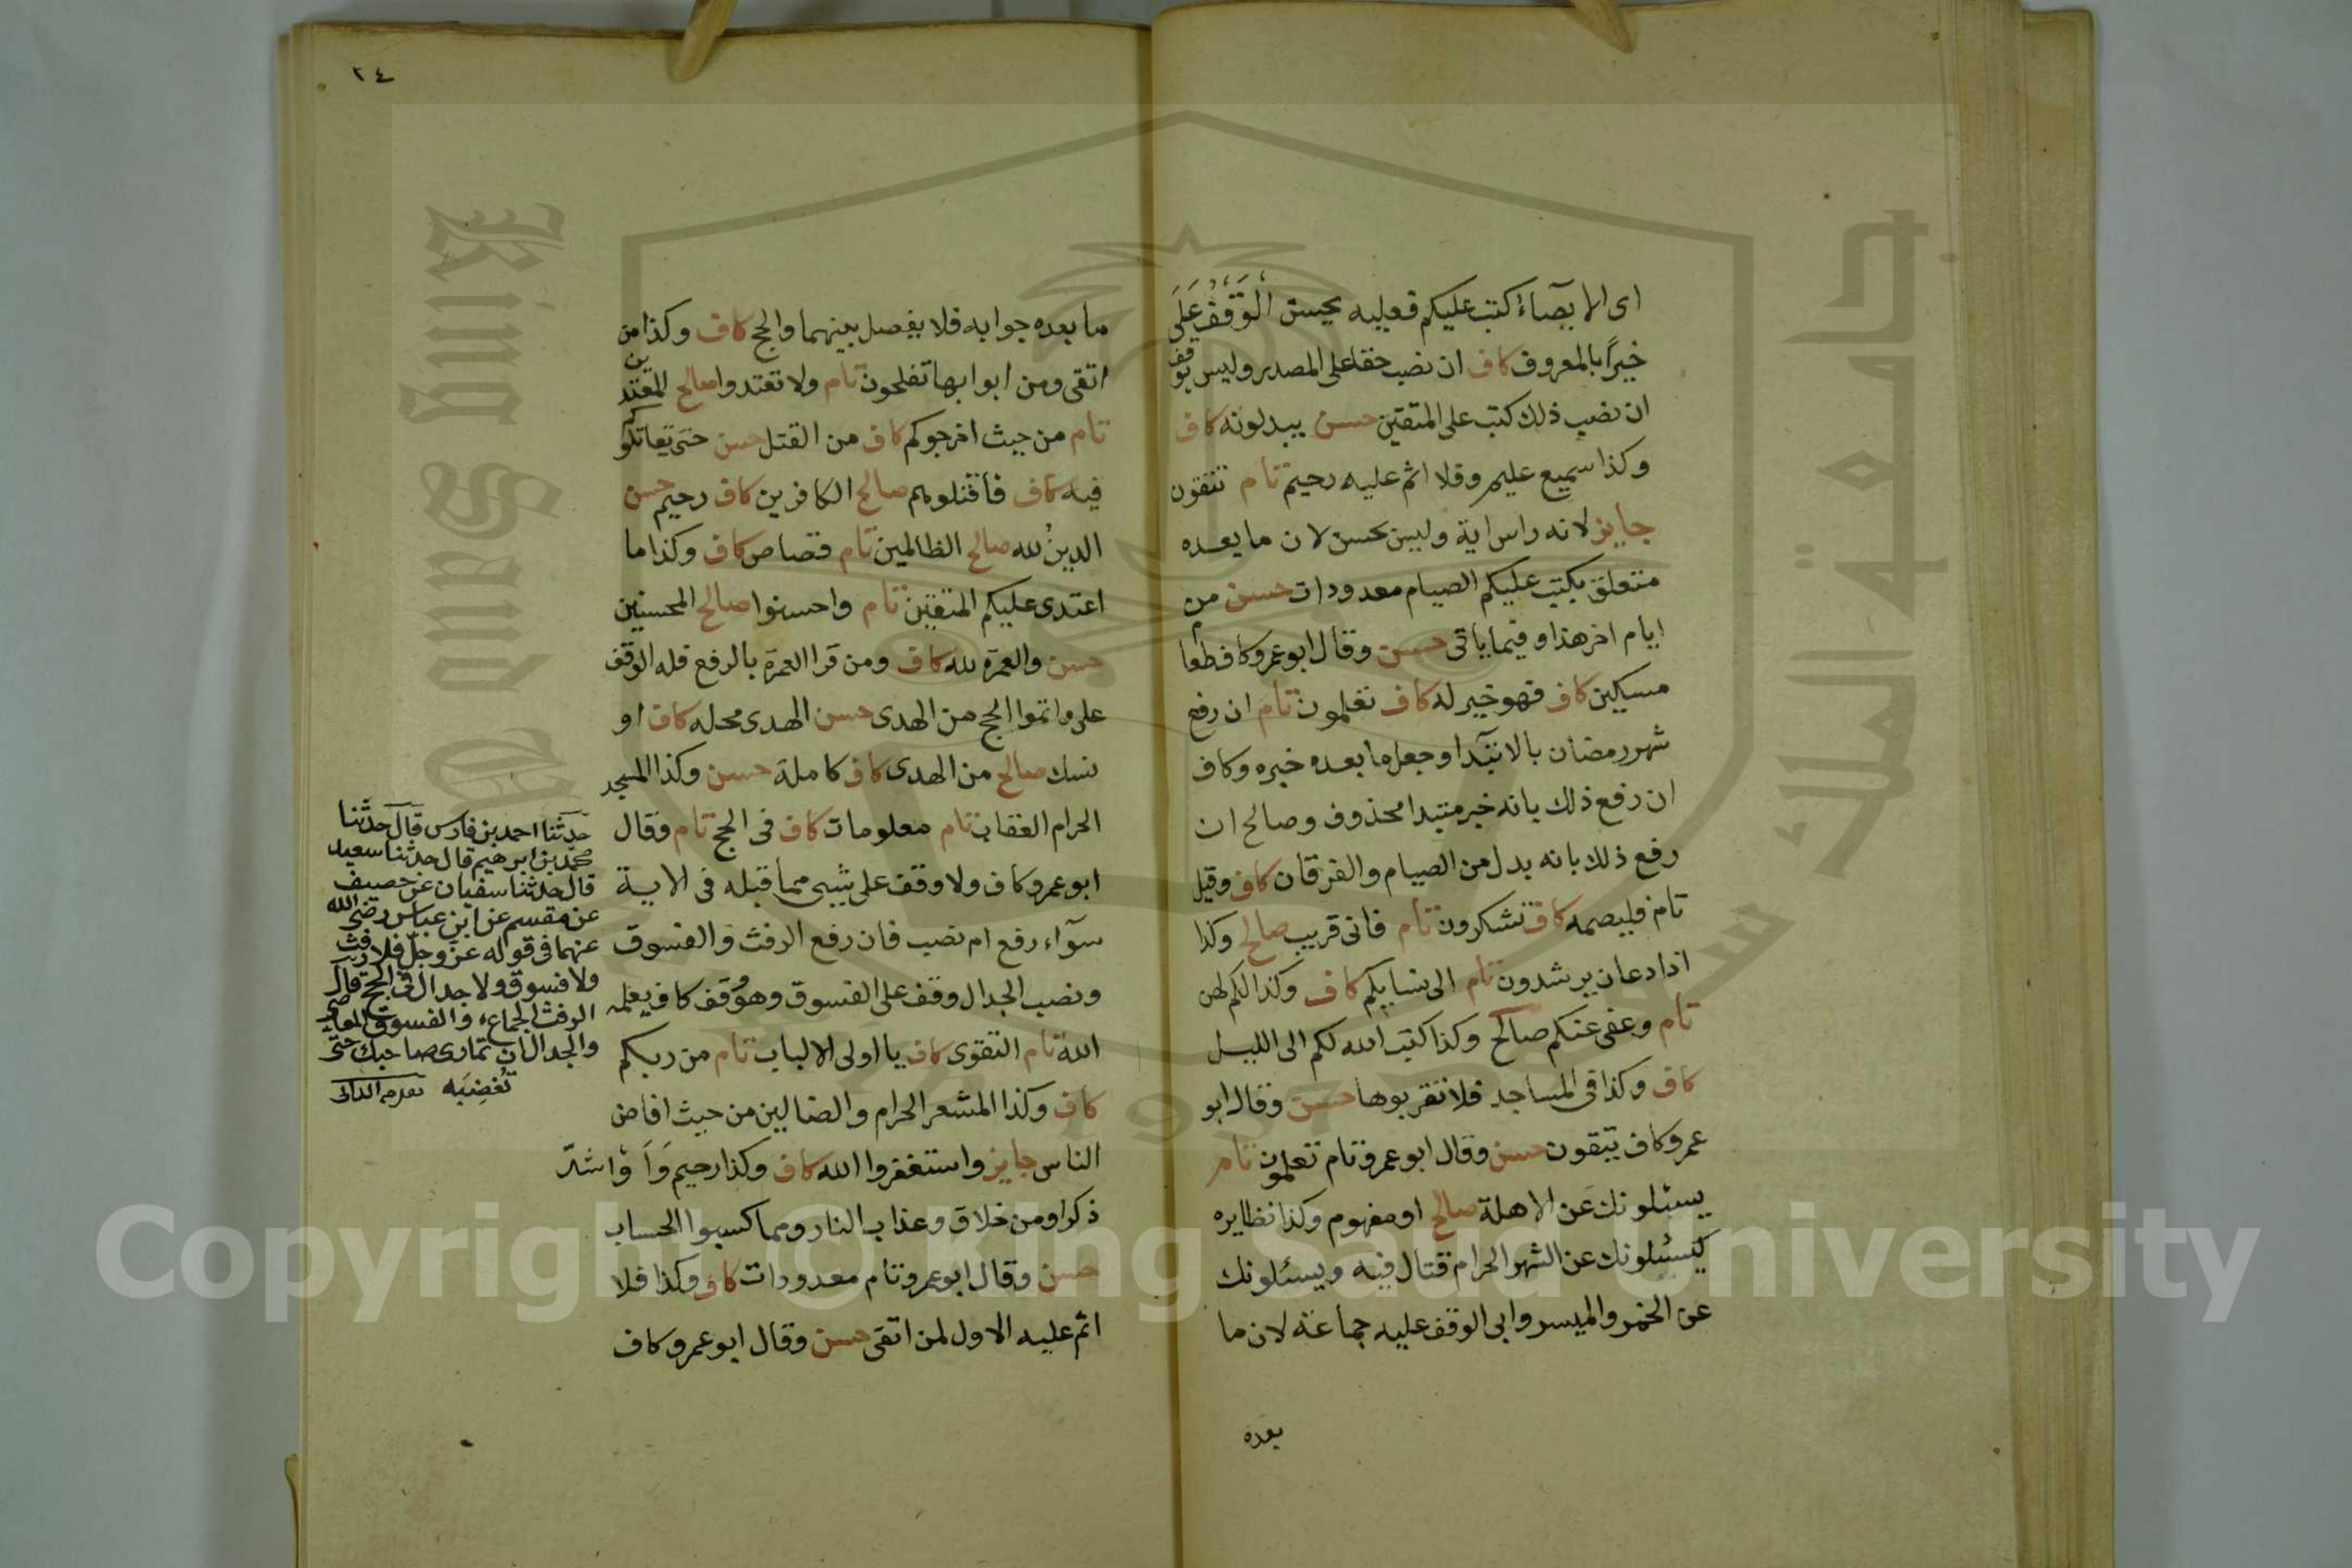 اى الايصاء كتب عليكم فعليه يحسن الوقف على
خيرا بالمعروف كاف ان نصب حقا على المصدر وليس بوقف
ان نصب ذلك كتب على المتقين حسن يبدلونه كاف
وكذا سميع عليم وقلا اثم عليه رحيم تام تتقون
جايز لانه راس اية وليس بحسن لان ما بعده
متعلق بكتب عليكم الصيام معدودات حسن من
ايام اخر هذا وفيما ياتى حسن وقال ابو عمرو كاف طعا
مسكين كاف فهو خير له كاف تعلمون تام ان رفع
شهر رمضان بالابتدا وجعل ما بعده خبره وكاف
ان رفع ذلك بانه خبر مبتدا محذوف وصالح ان
رفع ذلك بانه بدل من الصيام والفرقان كاف وقيل
تام فليصمه كاف تشكرون تام فانى قريب صالح وكذا
اذا دعان يرشدون تام الى نسايكم كاف وكذا لكم لهن
تام وعفى عنكم صالح وكذا كتب الله لكم الى الليل
كاف وكذا فى المساجد فلا تقربوها حسن وقال ابو
عمرو كاف يتقون حسن وقال ابو عمرو تام تعلمون تام
يسئلونك عن الاهلة صالح او مفهوم وكذا نظايره
كيسئلونك عن الشهر الحرام قتال فيه ويسئلونك
عن الخمر والميسر وابى الوقف عليه جماعة لان ما
بعده
٢٤
ما بعده جوابه فلا يفصل بينهما والحج كاف وكذا من
اتقى ومن ابوابها تفلحون تام ولا تعتدوا صالح المعتدين
تام من حيث اخرجوكم كاف من القتل حسن حتى يقاتلوكم
فيه كاف فاقتلوهم صالح الكافرين كاف رحيم حسن
الدين لله صالح الظالمين تام قصاص كاف وكذا ما
اعتدى عليكم المتقين تام واحسنوا صالح المحسنين
حسن والعمرة لله كاف ومن قرا العمرة بالرفع فله الوقف
على واتموا الحج من الهدى حسن الهدى محله كاف او
نسك صالح من الهدى كاف كاملة حسن وكذا المسجد
الحرام العقاب تام معلومات كاف فى الحج تام وقال
ابو عمرو كاف ولا وقف على شيى مما قبله فى الاية
سوآء رفع ام نصب فان رفع الرفث والفسوق
ونصب الجدال وقف على الفسوق وهو وقف كاف يعلمه
الله تام التقوى كاف يا اولى الالباب تام من ربكم
كاف وكذا المشعر الحرام والضالين من حيث افاض
الناس جايز واستغفروا الله كاف وكذا رحيم وا واشد
ذكرا ومن خلاق وعذاب النار ومما كسبوا الحساب
حسن وقال ابو عمرو تام معدودات كاف وكذا فلا
اثم عليه الاول لمن اتقى حسن وقال ابو عمرو كاف
حدثنا احمد بن فارس قال حدثنا
محمد بن ابرهيم قال حدثنا سعيد
قال حدثنا سفيان عن خصيف
عن مقسم عن ابن عباس رضى الله
عنهما فى قوله عز وجل فلا رفث
ولا فسوق ولا جدال فى الحج قال
الرفث الجماع والفسوق المعاصى
والجدال ان تمارى صاحبك حتى
تغضبه
King Saud
جامعة الملك سعود
1957
Copyright © King Saud University